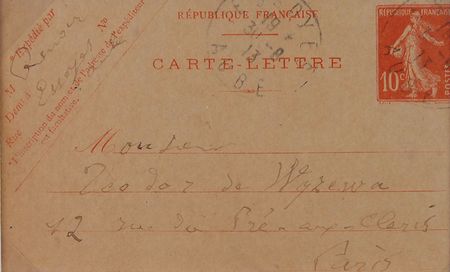 RÉPUBLIQUE FRANÇAISE
CARTE-LETTRE
RÉPUBLIQUE FRANÇAISE
10c
POSTES
AUBE
Expédié par
M Renoir
Demt à Essoyes
Rue
No
L'inscription du nom et de l'adresse de l'expéditeur
est facultative.
Monsieur
Teodor de Wyzewa
12 rue du Pré-aux-Clercs
Paris